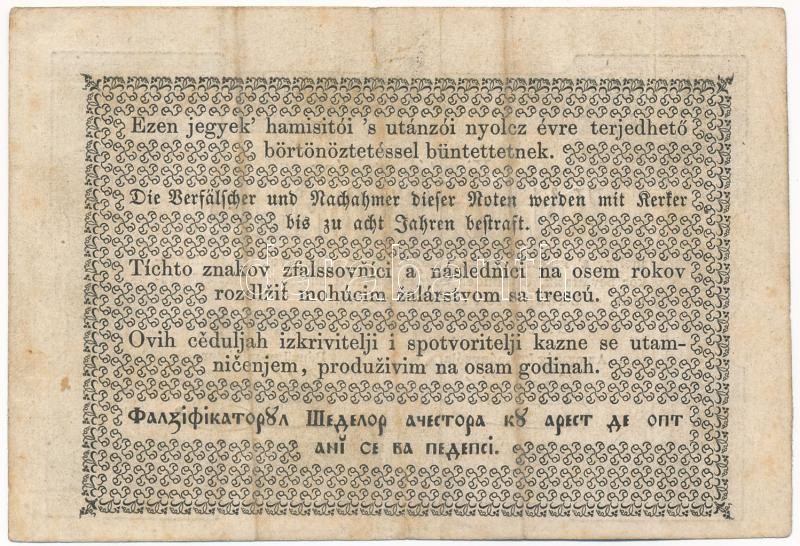 Ezen jegyek' hamisitói 's utánzói nyolcz évre terjedhető
börtönöztetéssel büntettetnek.
Die Verfälscher und Nachahmer dieser Noten werden mit Kerker
bis zu acht Jahren bestraft.
Tíchto znakov zfalssovňíci a následňíci na osem rokov
rozdlžiť mohúcim žalárstvom sa trescú.
darabanth
Ovih cěduljah izkrivitelji i spotvoritelji kazne se utam-
ničenjem, produživim na osam godinah.
Фалꙁіфікаторꙋл Шеделор ачестора кꙋ арест де опт
анї се ва педепсі.